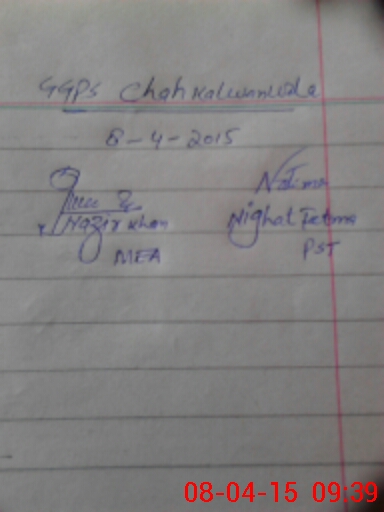 GGPS Chah Kalwanwala
8-4-2015
Nazir Khan
MEA
N.Fatima
Nighat Fatima
PST
08-04-15 09:39